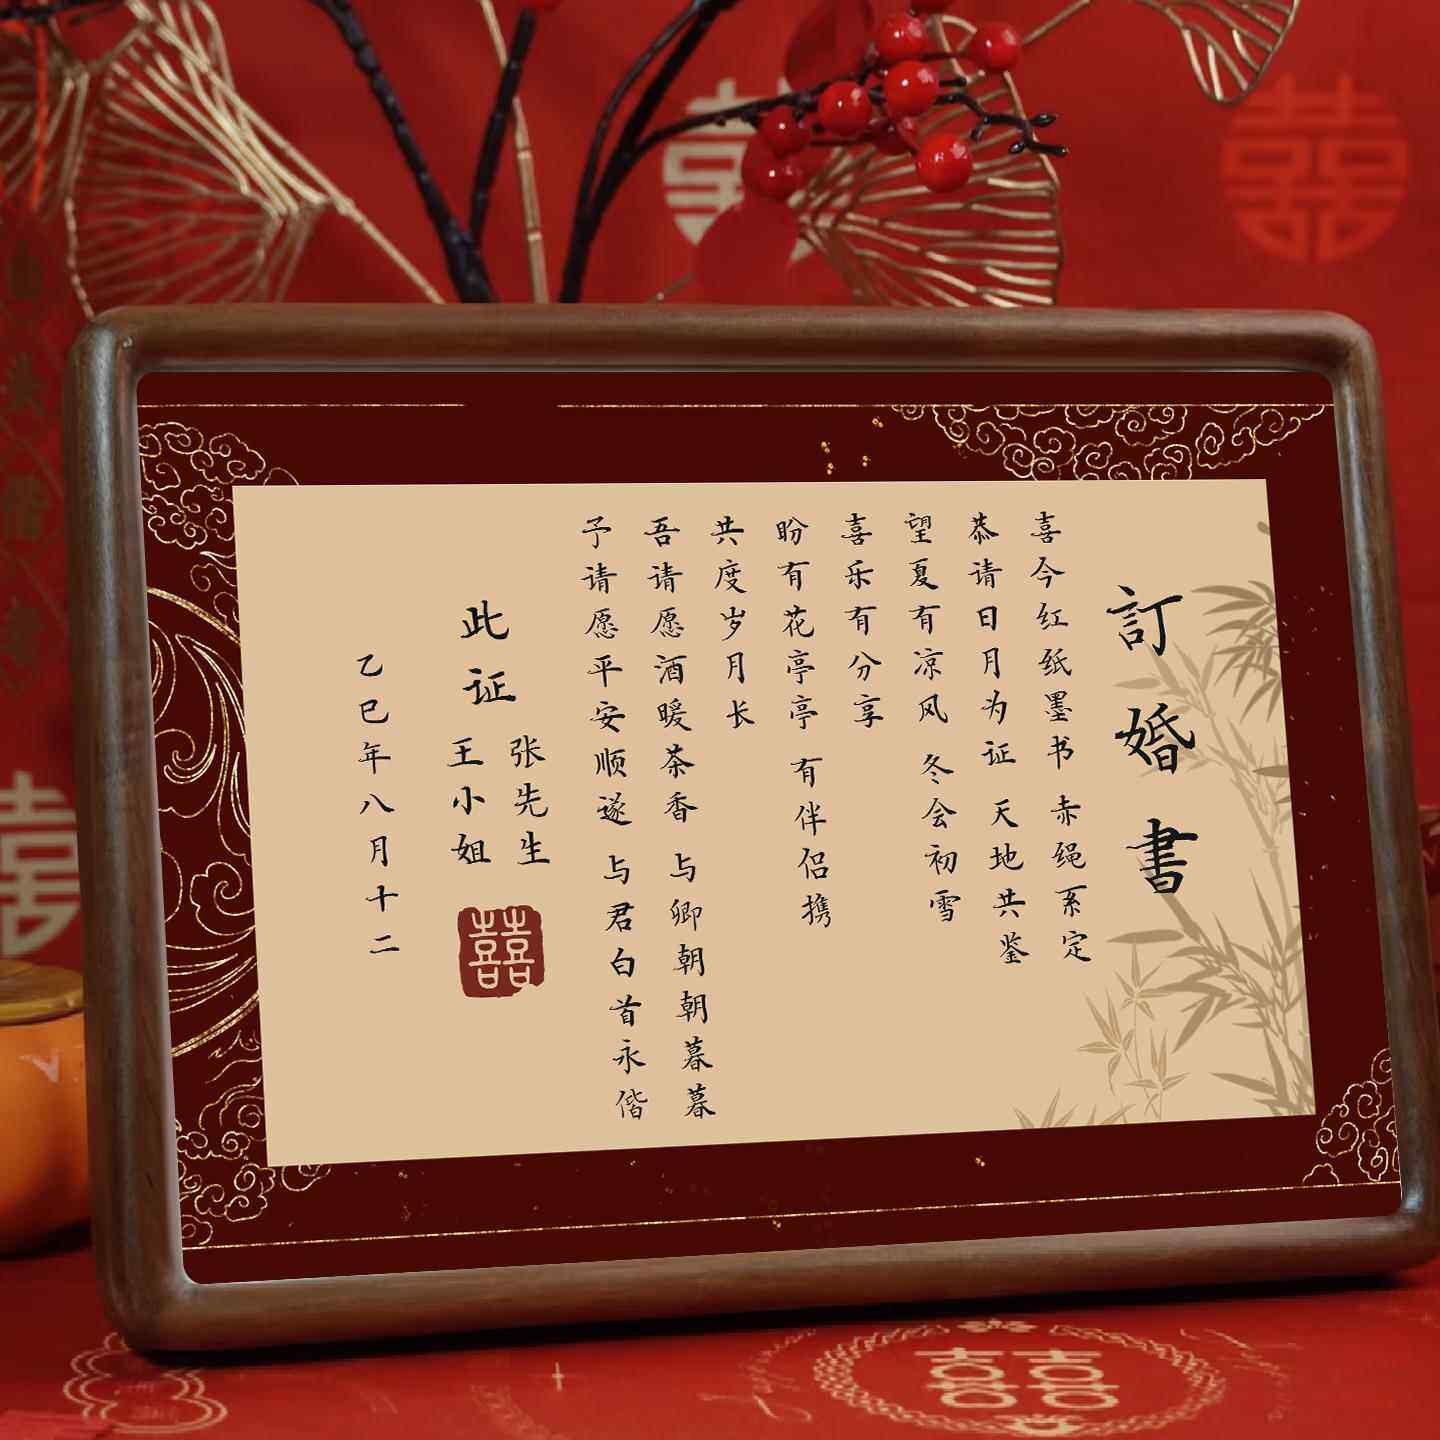 訂婚書
喜今红纸墨书 赤绳系定
恭请日月为证 天地共鉴
望夏有凉风 冬会初雪
喜乐有分享
盼有花亭亭 有伴侣携
共度岁月长
吾请愿酒暖茶香 与卿朝朝暮暮
予请愿平安顺遂 与君白首永偕
此证
张先生
王小姐
囍
乙巳年八月十二
囍
囍
囍
囍